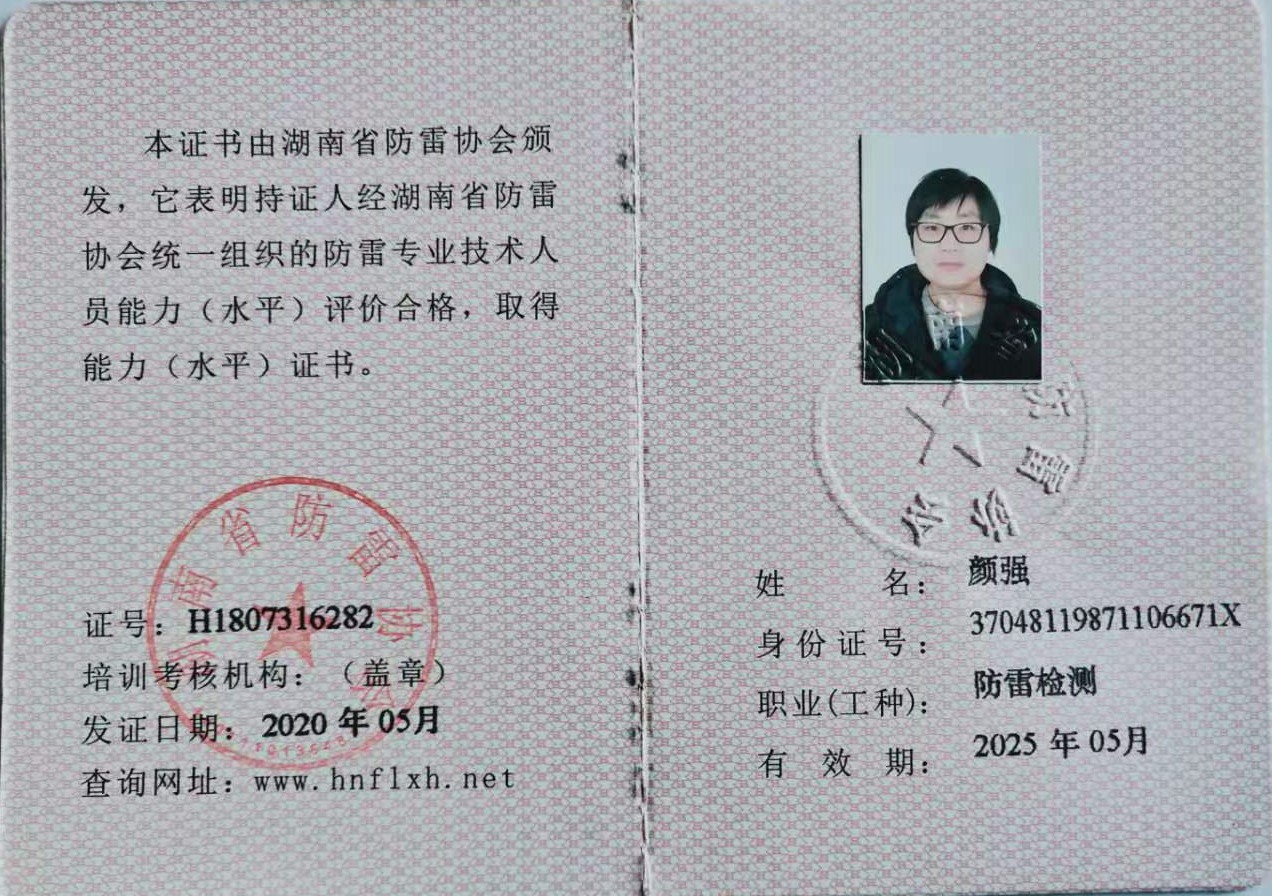 本证书由湖南省防雷协会颁
发，它表明持证人经湖南省防雷
协会统一组织的防雷专业技术人
员能力（水平）评价合格，取得
能力（水平）证书。
湖南省防雷协会
证号：H1807316282
培训考核机构：（盖章）
发证日期：2020 年 05月
查询网址：www.hnflxh.net
湖南省防雷协会
姓名：颜强
身份证号：37048119871106671X
职业(工种)：防雷检测
有效期：2025 年 05月